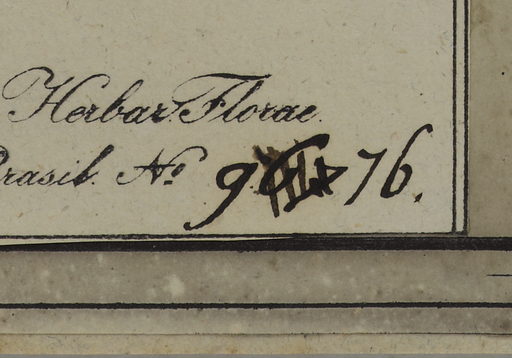 Herbar. Florae
Brasil. No 976.